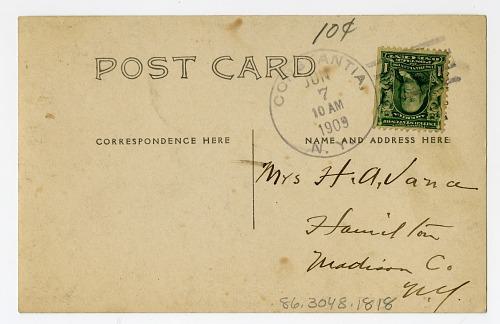 10¢
POST CARD
CONSTANTIA,
JUN
7
10 AM
1909
N.Y.
CORRESPONDENCE HERE
NAME AND ADDRESS HERE
Mrs H. A. Vance
Hamilton
Madison Co.
N.Y.
86.3048.1818